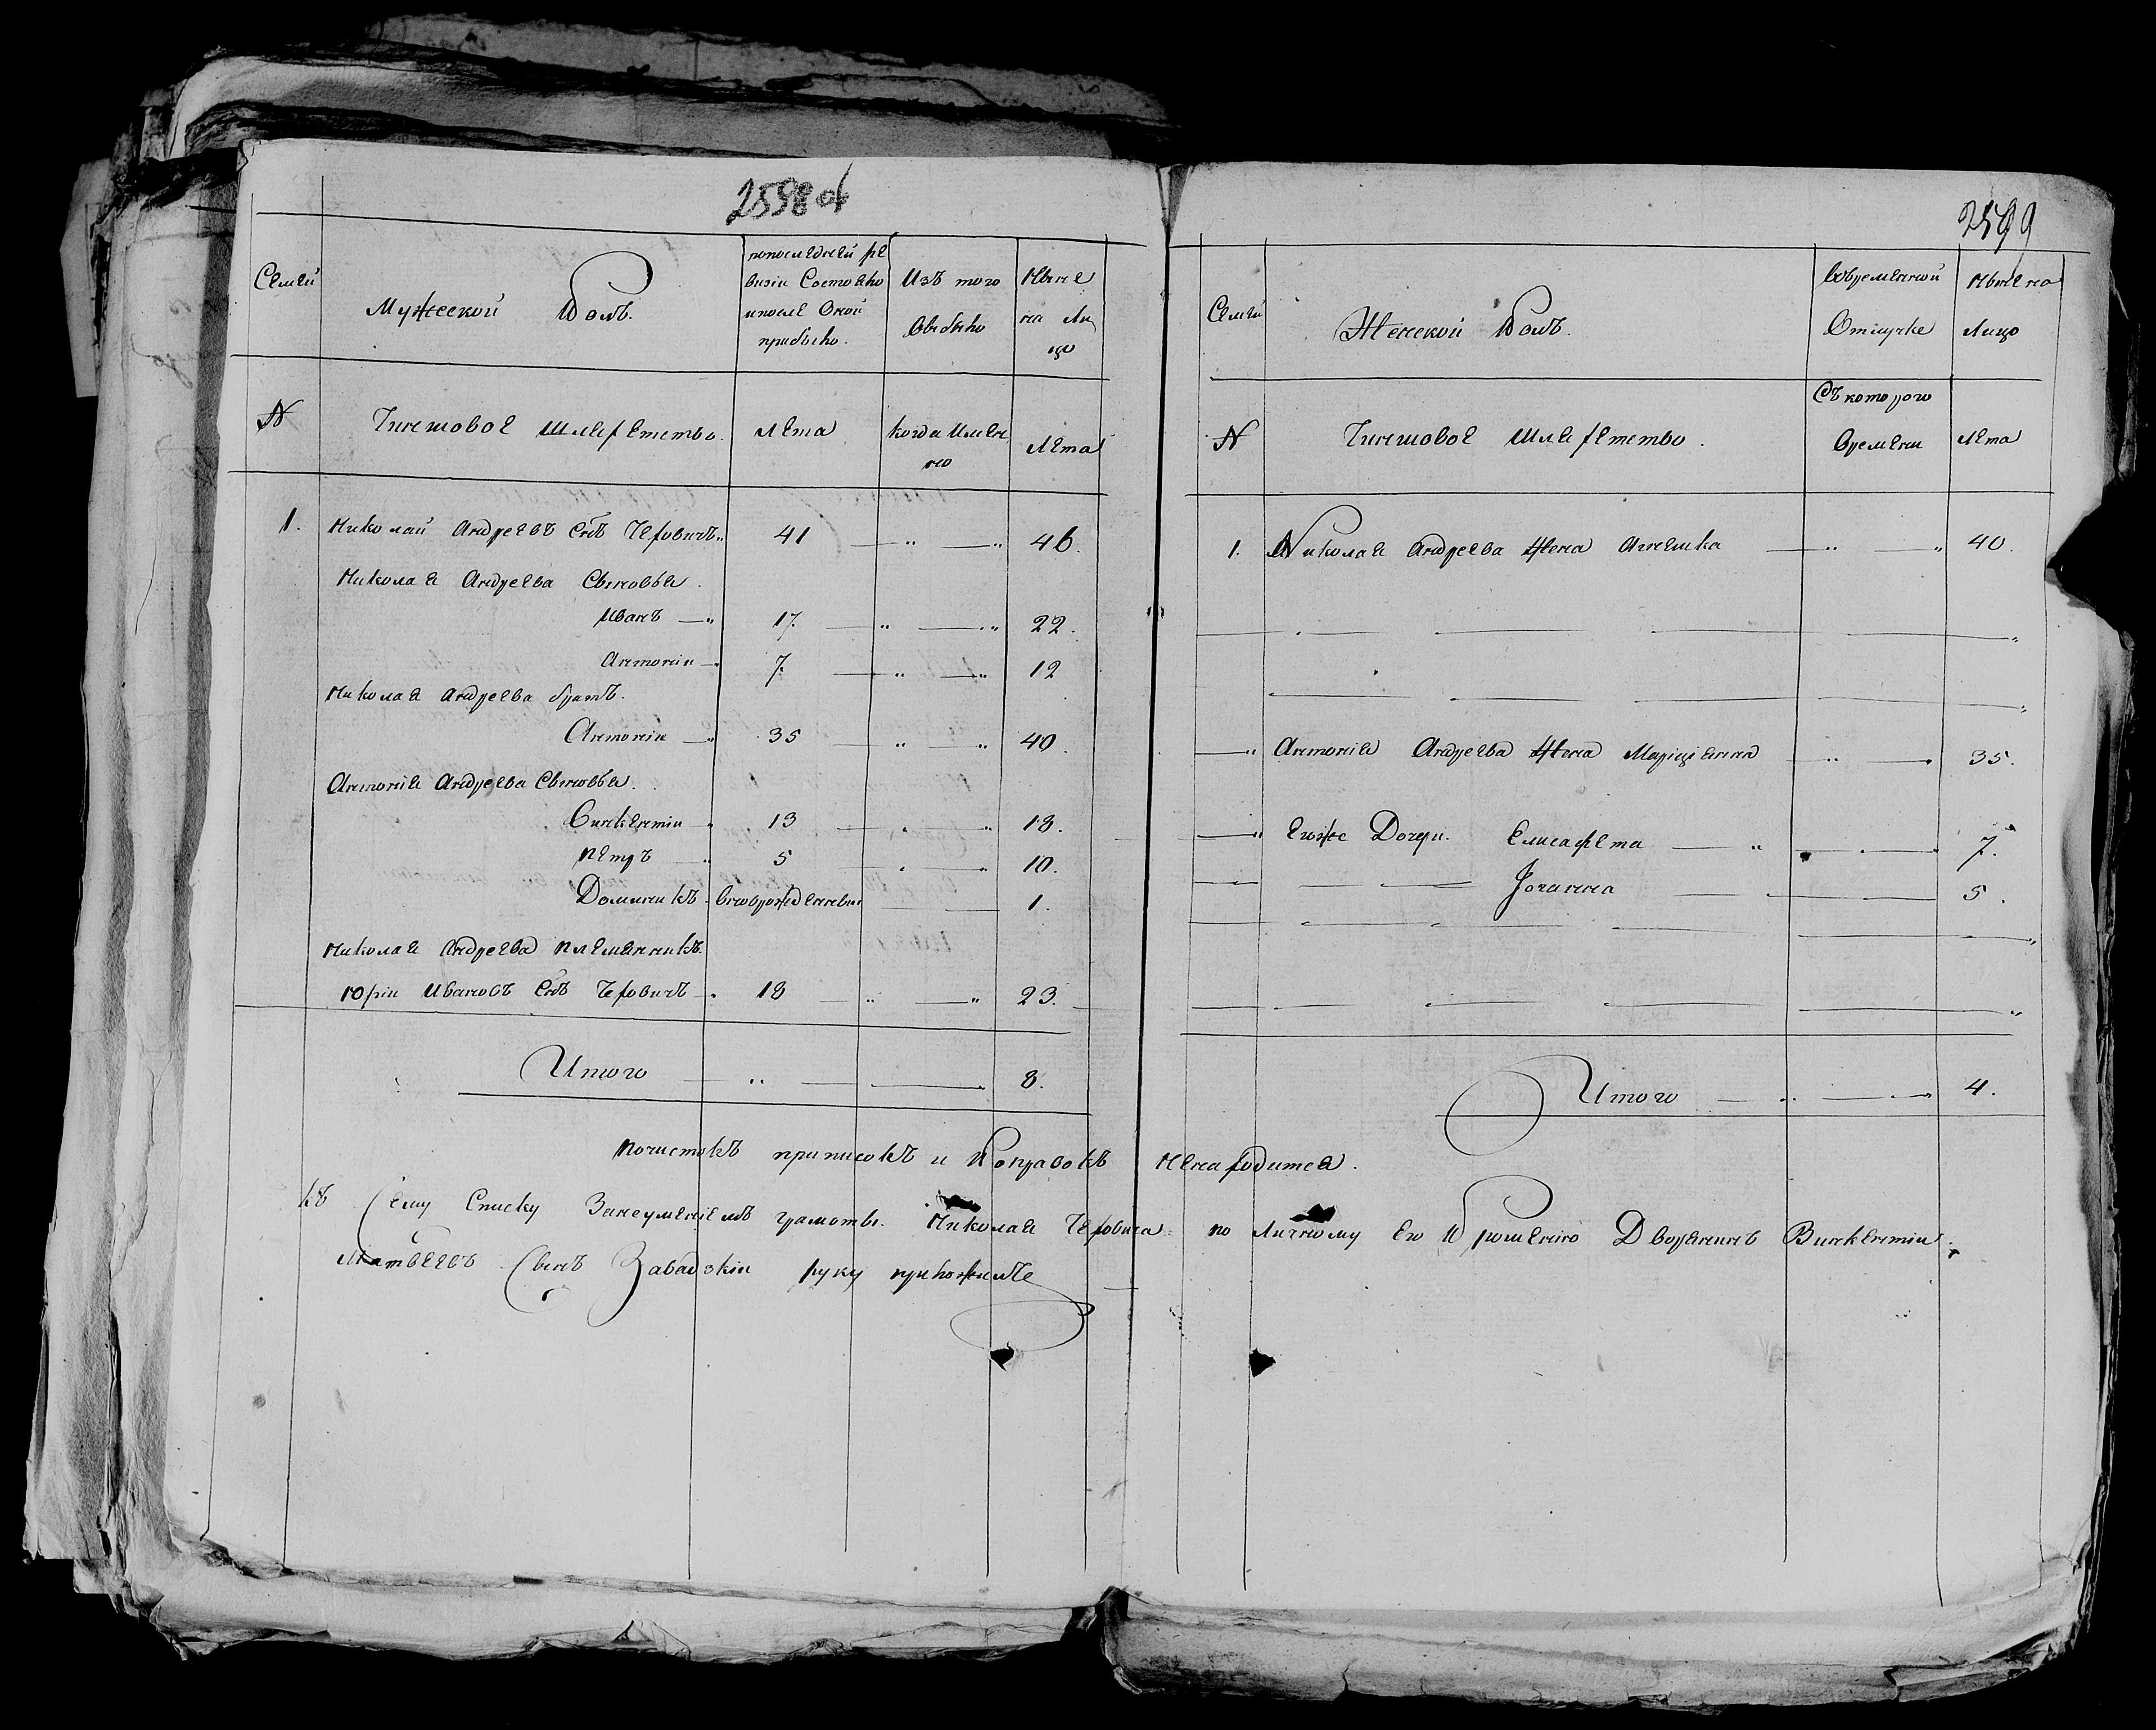 2598 об
Семьи
Мужеской Полъ.
попоследней ре
визіи Состояло
ипосле Оной
прибыло.
Изъ того
Выбыло
Ныне
на Ли
цо
№
Чиншовое Шляхетство.
Лета
когда Имян
но
Лета
1. Николай Андреевъ Снъ Чеховичъ 41 46.
Николая Андреева Сыновья.
Иванъ 17. 22.
Антоніи 7. 12
Николая Андреева братъ.
Антоніи 35 40.
Антонія Андреева Сыновья.
Викентіи 13 18.
Петръ 5 10.
Доминикъ вновьрожденныи 1.
Николая Андреева племянникъ.
Юріи Ивановъ Снъ Чеховичъ 18 23.
Итого 8.
2599
Семьи
Женской Полъ.
Вовременной
Отлучке
Ныне на
Лицо
№
Чиншовое Шляхетство.
Съ которого
Времени
Лета
1. Николая Андреева Жена Агнешка 40.
Антонія Андреева Жена Маріціянна 35.
Егоже Дочери. Елисафета 7.
Іоганна 5.
Итого 4.
почистокъ приписокъ и Поправокъ ненаходится.
къ Сему Списку Занеуменіемъ грамоты. Николая Чеховича по Личному Его Прошенію Дворянинъ Викентіи
Матвеевъ Сынъ Завадзкіи руку приложилъ